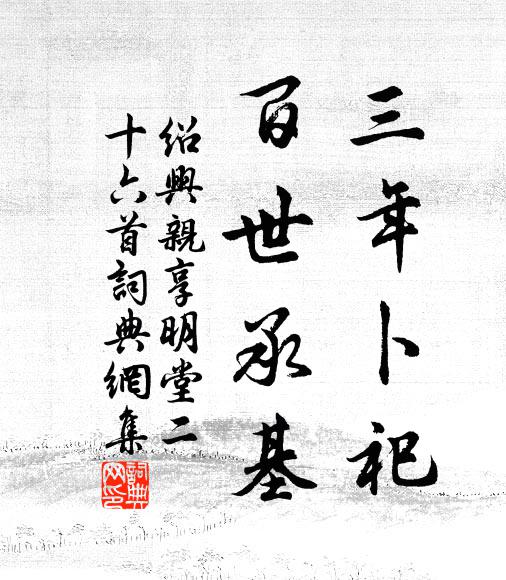 三年卜祀
百世承基
紹興親享明堂二
十六首詞典網集
詞典
网印